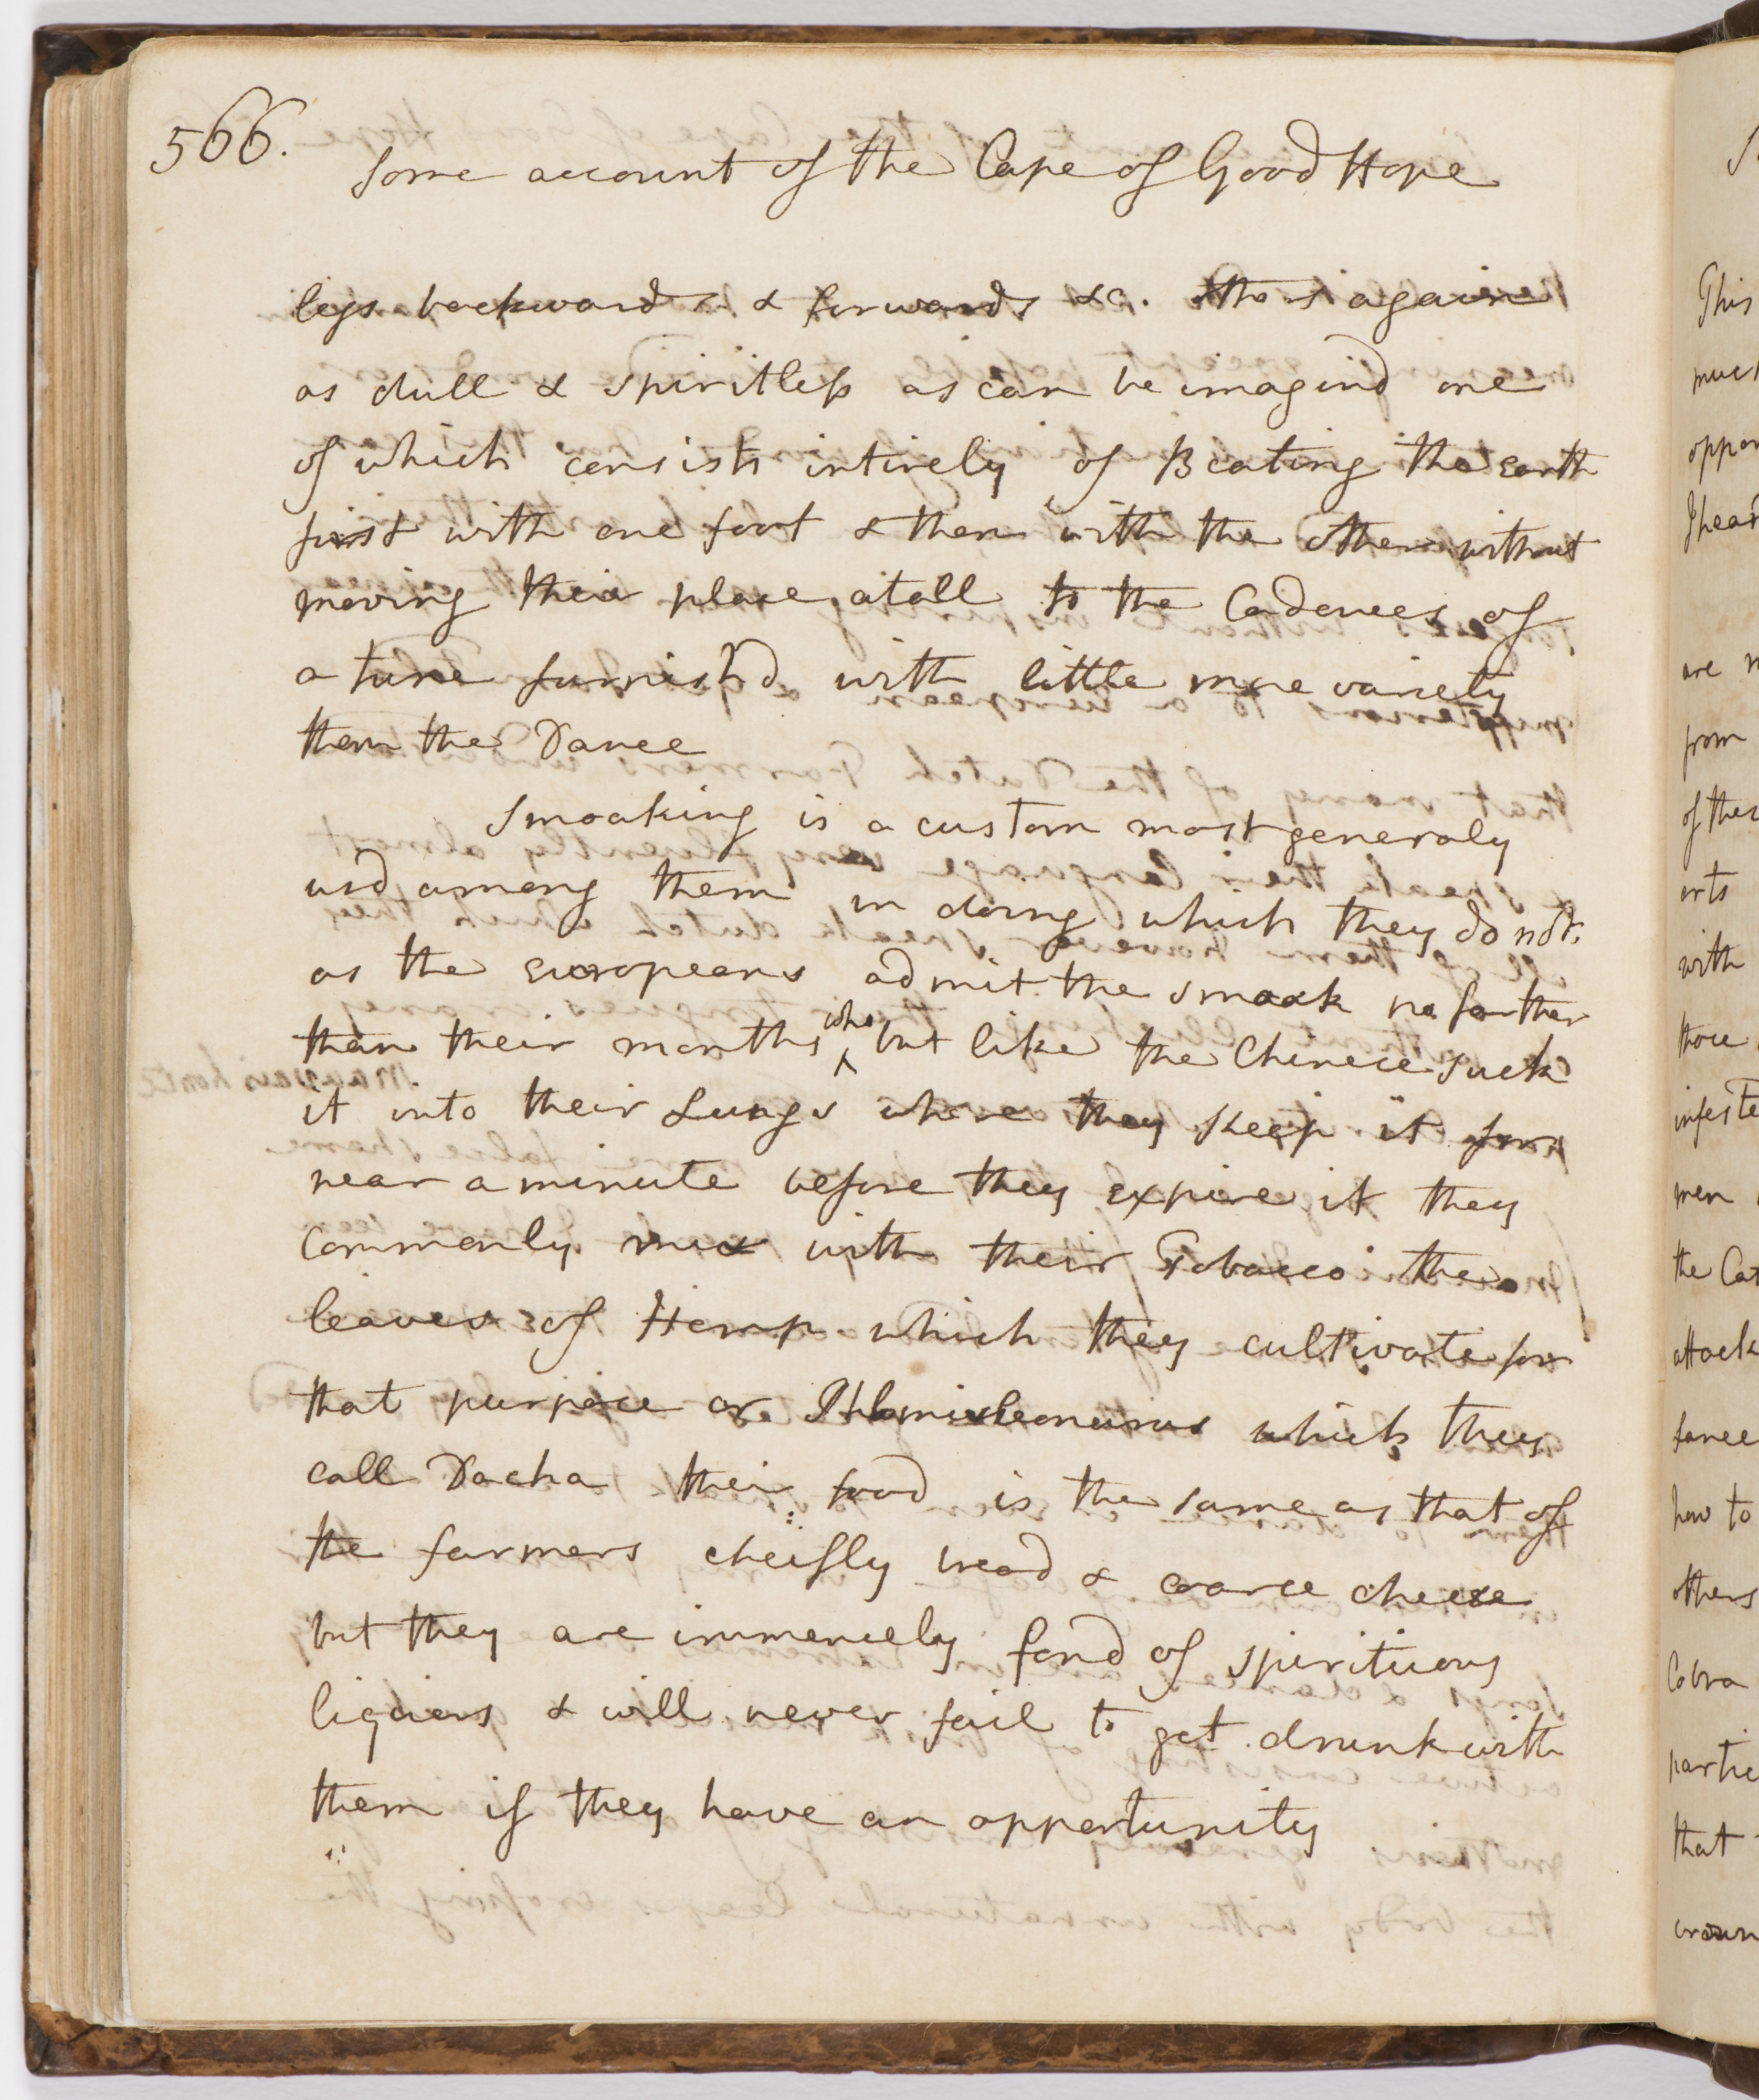 566.
Some account of the Cape of Good Hope
legs backwards & forwards &c. others again
as dull & spiritless as can be imagind one
of which consists intirely of Beating the earth
first with one foot & then with the other without
moving their place atall to the Cadences of
a tune furnish'd with little more variety
than the Dance
Smoaking is a custom most generaly
usd among them in doing which they do not
as the europeans admit the smoak no farther
than their mouths who but like the Chinece suck
it into their Lungs where they keep it for
near a minute before they expire it they
commonly mix with their Tobacco the
leaves of Hemp which they cultivate for
that purpose or Phlomis leonurus which they
call Dacha their food is the same as that of
the farmers cheifly bread & coarce cheese
but they are immencely fond of spirituous
liquors & will never fail to get drunk with
them if they have an opportunity
This
oppor
I hear
are
from
of thes
arts
with
those
infeste
men
the Cat
attack
how to
others
Cobra
partic
that